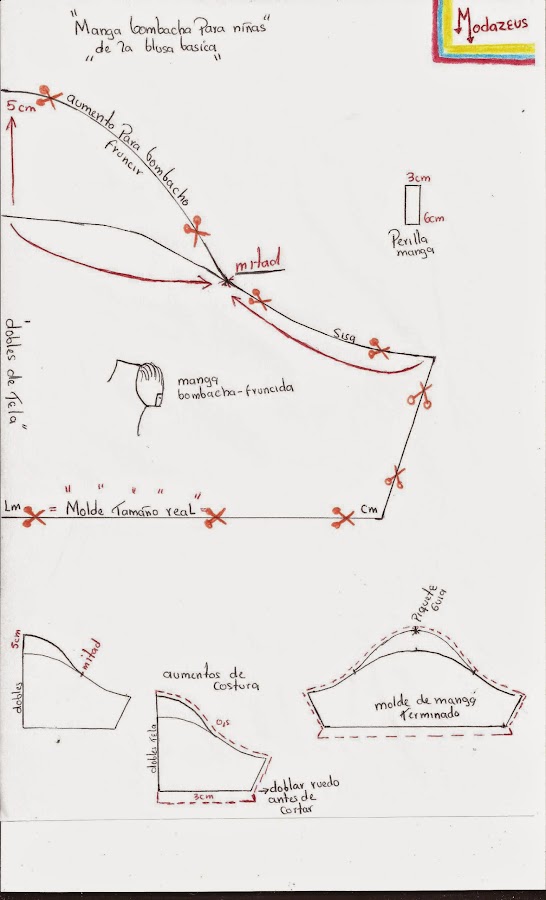 "Manga bombacha Para niñas"
" de la blusa basica "
Modazeus
5cm
aumento Para bombacho
fruncir
3cm
6cm
Perilla
manga
mitad
Sisa
dobles de Tela"
manga
bombacha-fruncida
Lm
= "Molde Tamaño real" =
Cm
5cm
mitad
dobles
aumentos de
costura
0,5
dobles Tela
3cm
doblar ruedo
antes de
cortar
Piquete
Guia
molde de manga
Terminado